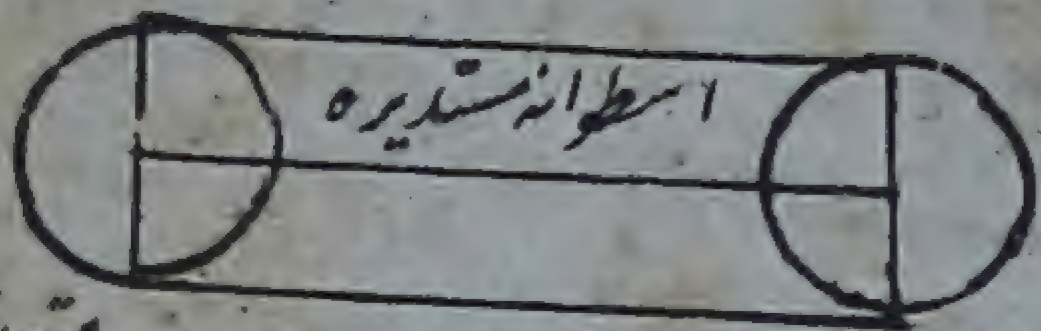 اسطوانه مستدیره